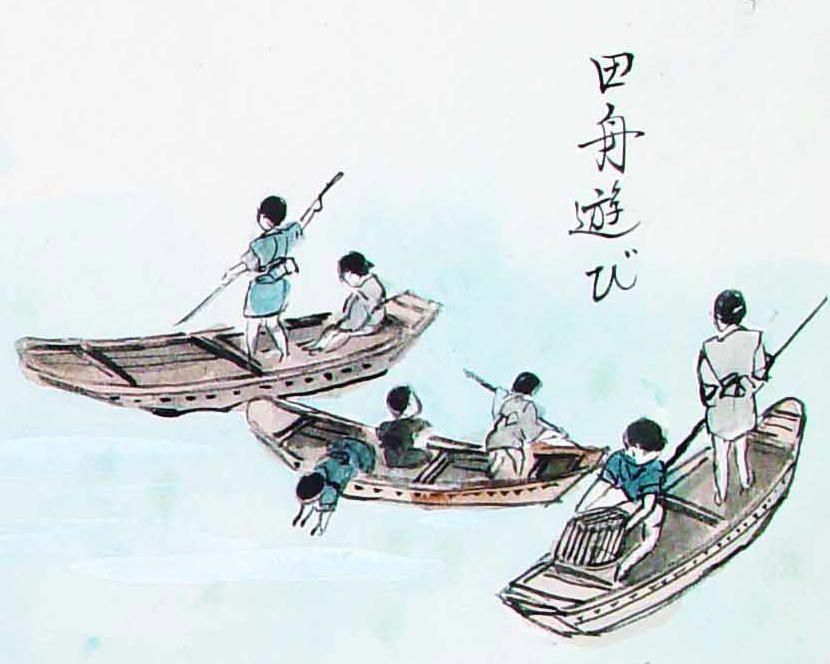 田舟遊び